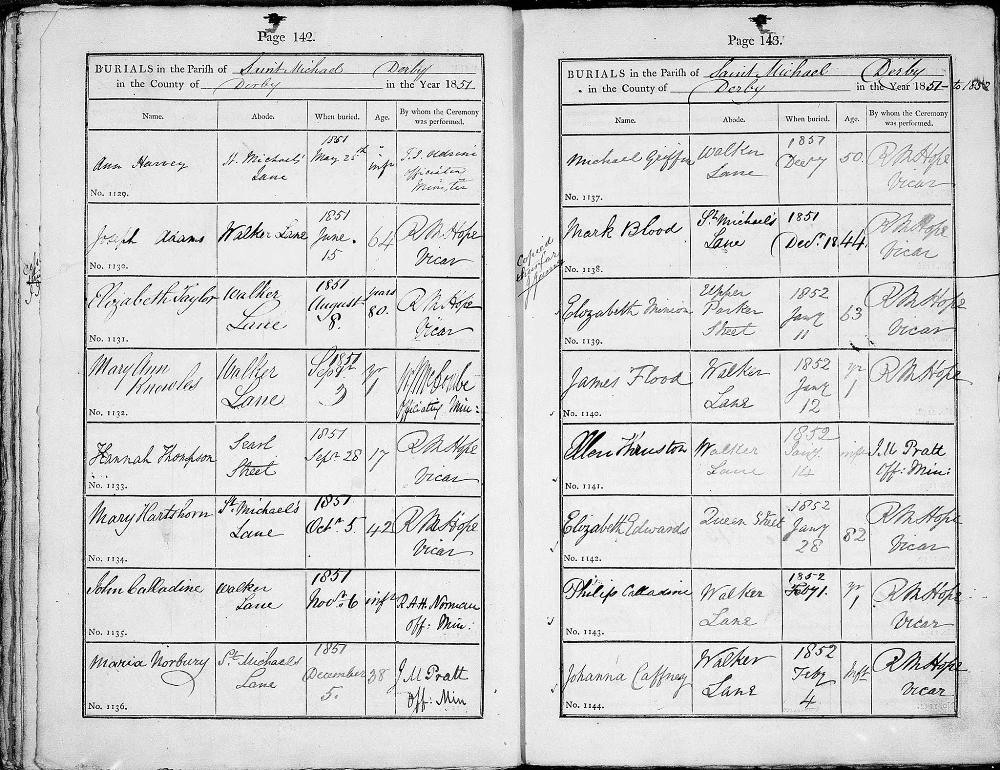 Page 142.
BURIALS in the Parish of Saint Michael Derby
in the County of Derby in the Year 1851
Name. Abode. When buried. Age. By whom the Ceremony was performed.
Ann Harvey
No. 1129.
St. Michael's
Lane
1851
May 25th
inft
Officiating
Minister
Joseph Adams
No. 1130.
Walker Lane
1851
June
15
64
R M Hope
Vicar
Elizabeth Taylor
No. 1131.
Walker
Lane
1851
August
8.
years
80.
R M Hope
Vicar
Mary Ann
Knowles
No. 1132.
Walker
Lane
1851
Sept
3
yr
1
Officiating Min:
Hannah Thompson
No. 1133.
Searl
Street
1851
Sept 28
17
R M Hope
Vicar
Mary Hartshorn
No. 1134.
St. Michael's
Lane
1851
Octr 5
42
R M Hope
Vicar
John Calladine
No. 1135.
Walker
Lane
1851
Novr 6
inft
R.A.H. Norman
Off: Min:
Maria Norbury
No. 1136.
St. Michaels
Lane
1851
December
5.
38
J M Pratt
Off: Min
Page 143.
BURIALS in the Parish of Saint Michael Derby
in the County of Derby in the Year 1851 - to 1852
Name. Abode. When buried. Age. By whom the Ceremony was performed.
Michael Griffin
No. 1137.
Walker
Lane
1851
50.
R M Hope
Vicar
Mark Blood
No. 1138.
St. Michael's
Lane
1851
Decr. 18
44.
R M Hope
Vicar
Copied
so far
Elizabeth Minion
No. 1139.
Upper
Parker
Street
1852
Jany
11
63
R M Hope
Vicar
James Flood
No. 1140.
Walker
Lane
1852
Jany
12
yr
1
R M Hope
Ellen
No. 1141.
Walker
Lane
1852
Jany
14
inft
J.M Pratt
Off: Min:
Elizabeth Edwards
No. 1142.
Queen Street
1852
Jany
28
82
R M Hope
Vicar
Philip Calladine
No. 1143.
Walker
Lane
1852
Feby 1.
yr
1
R M Hope
Vicar
Johanna Caffney
No. 1144.
Walker
Lane
1852
Feby
4
Inft
R M Hope
Vicar